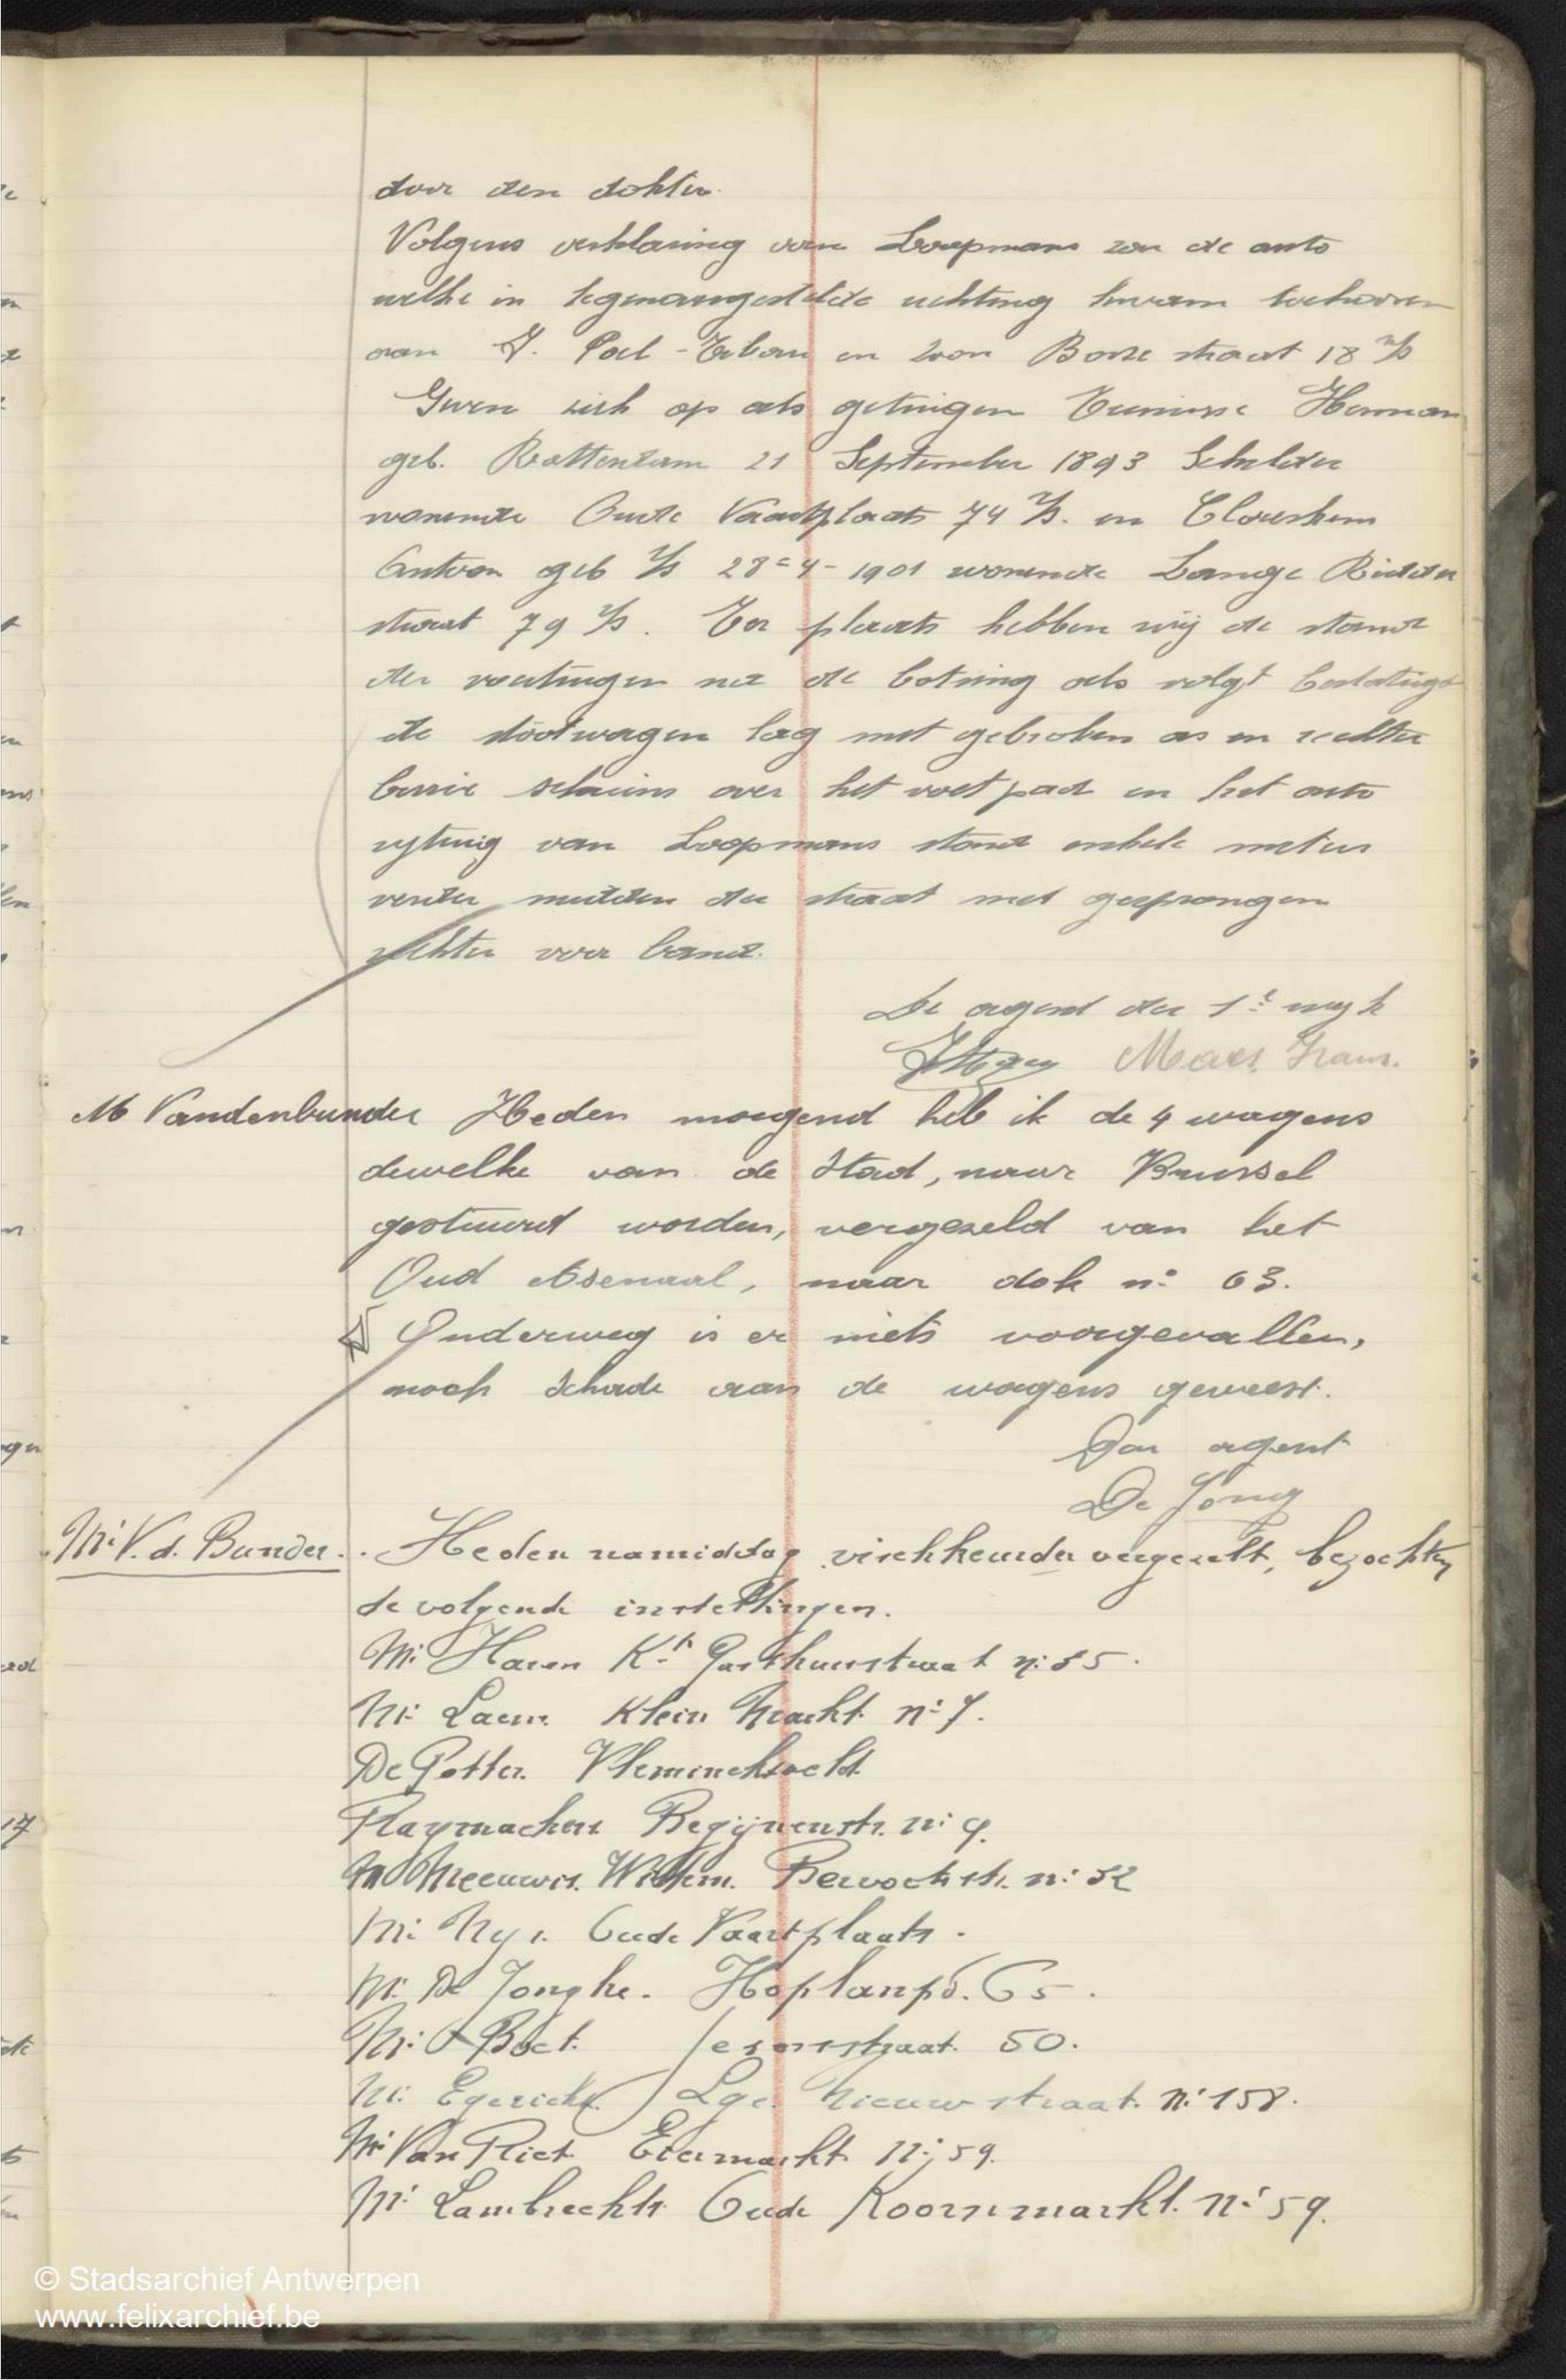 door den dokter.
Volgens verklaring van Loopmans zou de auto
welke in tegenovergestelde richting kwam toehooren
aan J. Poel - en woon straat 18 a/s
Geven zich op als getuigen Teunisse Herman
geb. Rotterdam 21 September 1893 Schilder
wonende Oude Vaartplaats 74 a/s. en
Antoon geb a/s 28=4- 1901 wonende Lange Ridder
straat 79 a/s. Ter plaats hebben wij de stand
der voertuigen na de botsing als volgt bestatigd
de stootwagen lag met gebroken as en rechter
berrie schuins over het voetpad en het auto
rijtuig van Loopmans stond enkele meters
verder midden der straat met gesprongen
rechter voor band.
De agent der 1e wijk
Maes Frans.
M Vandenbunder Heden morgend heb ik de 4 wagens
dewelke van de Stad, naar Brussel
gestuurd worden, vergezeld van het
Oud Arsenaal, naar dok n: 63.
Onderweg is er niets voorgevallen,
noch schade aan de wagens geweest.
Den agent
De Jong
Mr V. d. Bunder. Heden namiddag vischkeurder vergezelt, bezochten
de volgende instellingen.
Mr Haven Kte Gasthuisstraat n: 35.
Mr Laem. Klein Markt n: 7.
De Potter. Vleminckveld
Raymackers Begijnenstr. n: 9.
Mr Meeuwis. Willem. Bervoetsstr. n: 32
Mr Nys. Oude Vaartplaats.
Mr De Jonghe. Hoplanpd. 65.
Mr Boet. straat. 50.
Mr Egericks Lge. Nieuwstraat. n: 158.
Mr Van Riet Eiermarkt n: 59.
Mr Lambrechts Oude Koornmarkt. n: 59.
© Stadsarchief Antwerpen
www.felixarchief.be